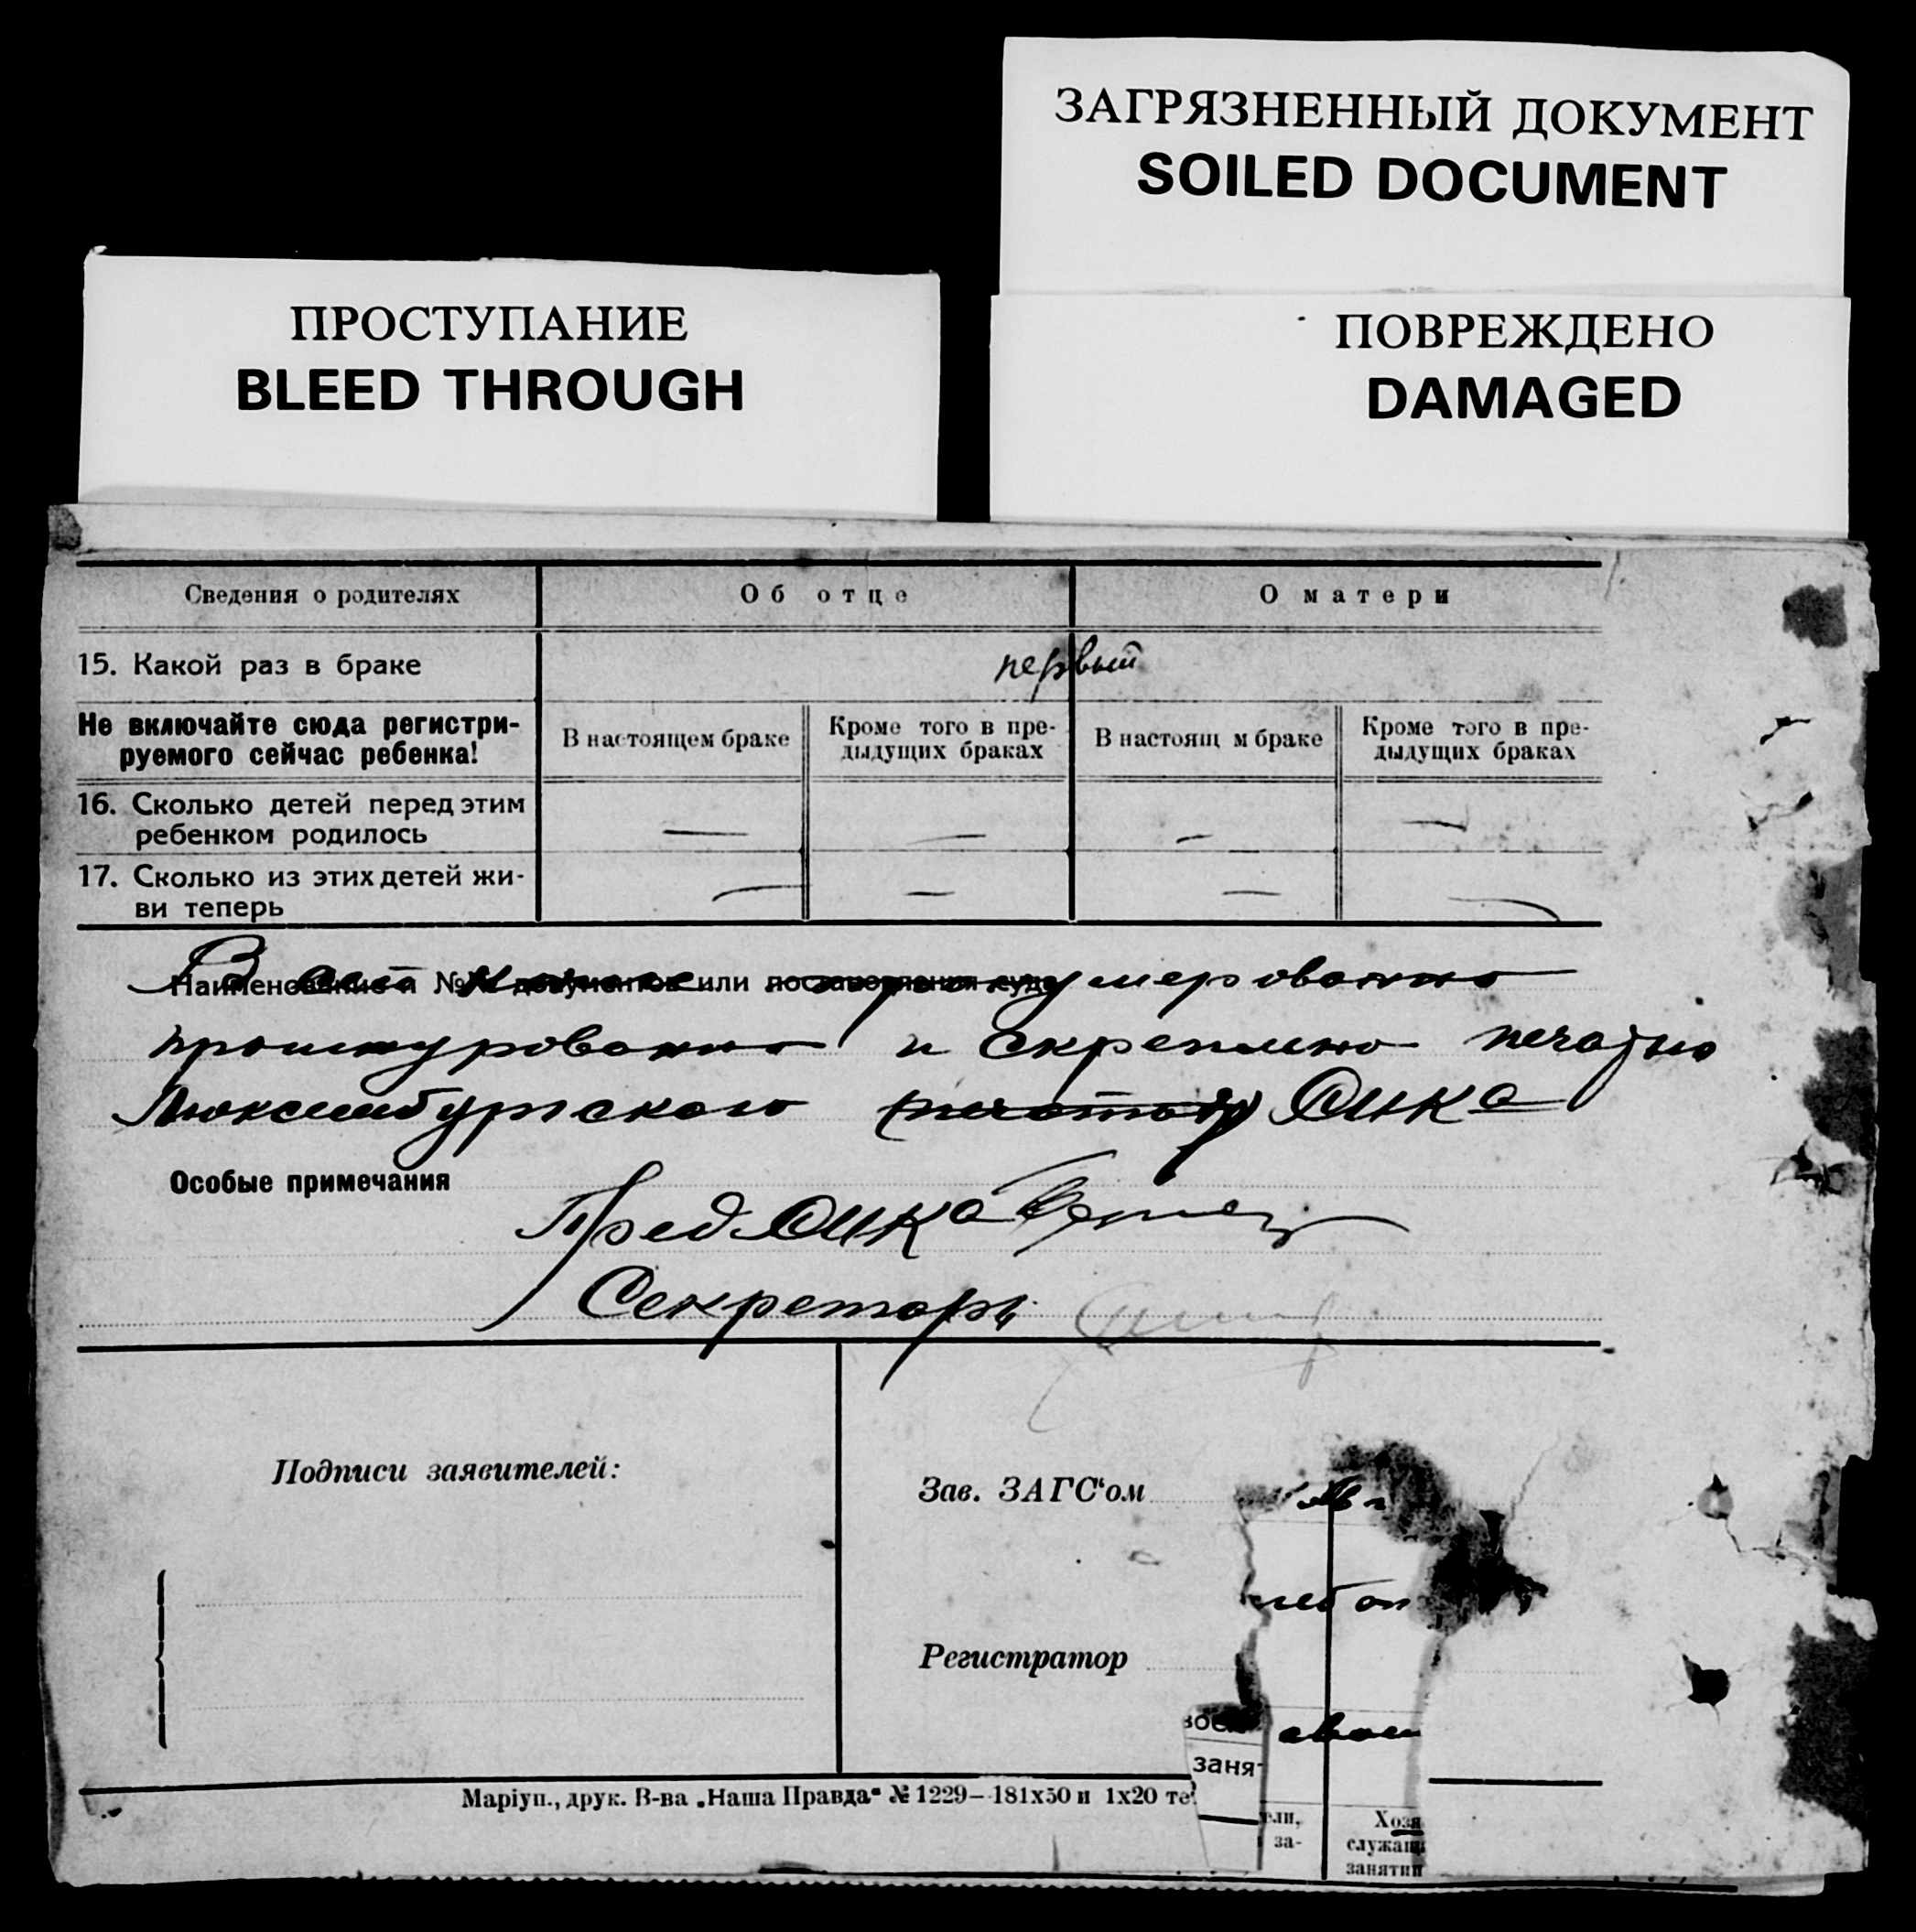 ЗАГРЯЗНЕННЫЙ ДОКУМЕНТ
SOILED DOCUMENT
ПРОСТУПАНИЕ
BLEED THROUGH
ПОВРЕЖДЕНО
DAMAGED
Сведения о родителях
Об отце
О матери
15. Какой раз в браке
первый
Не включайте сюда регистри-
руемого сейчас ребенка!
В настоящем браке
Кроме того в пре-
дыдущих браках
В настоящ м браке
Кроме того в пре-
дыдущих браках
16. Сколько детей перед этим
ребенком родилось
— — — —
17. Сколько из этих детей жи-
ви теперь
— — — —
Наименование и №№ документов или постановления суда
В сей книге пронумерованно
прошнурованно и скреплено печатью
Люксембургского СИКа
Особые примечания
Пред СИКа
Секретарь
Подписи заявителей:
Зав. ЗАГС‘ом
Регистратор
заня-
Маріуп., друк. В-ва „Наша Правда“ № 1229–181х50 и 1х20 те
ели,
за-
Хозя
служащ
занятии